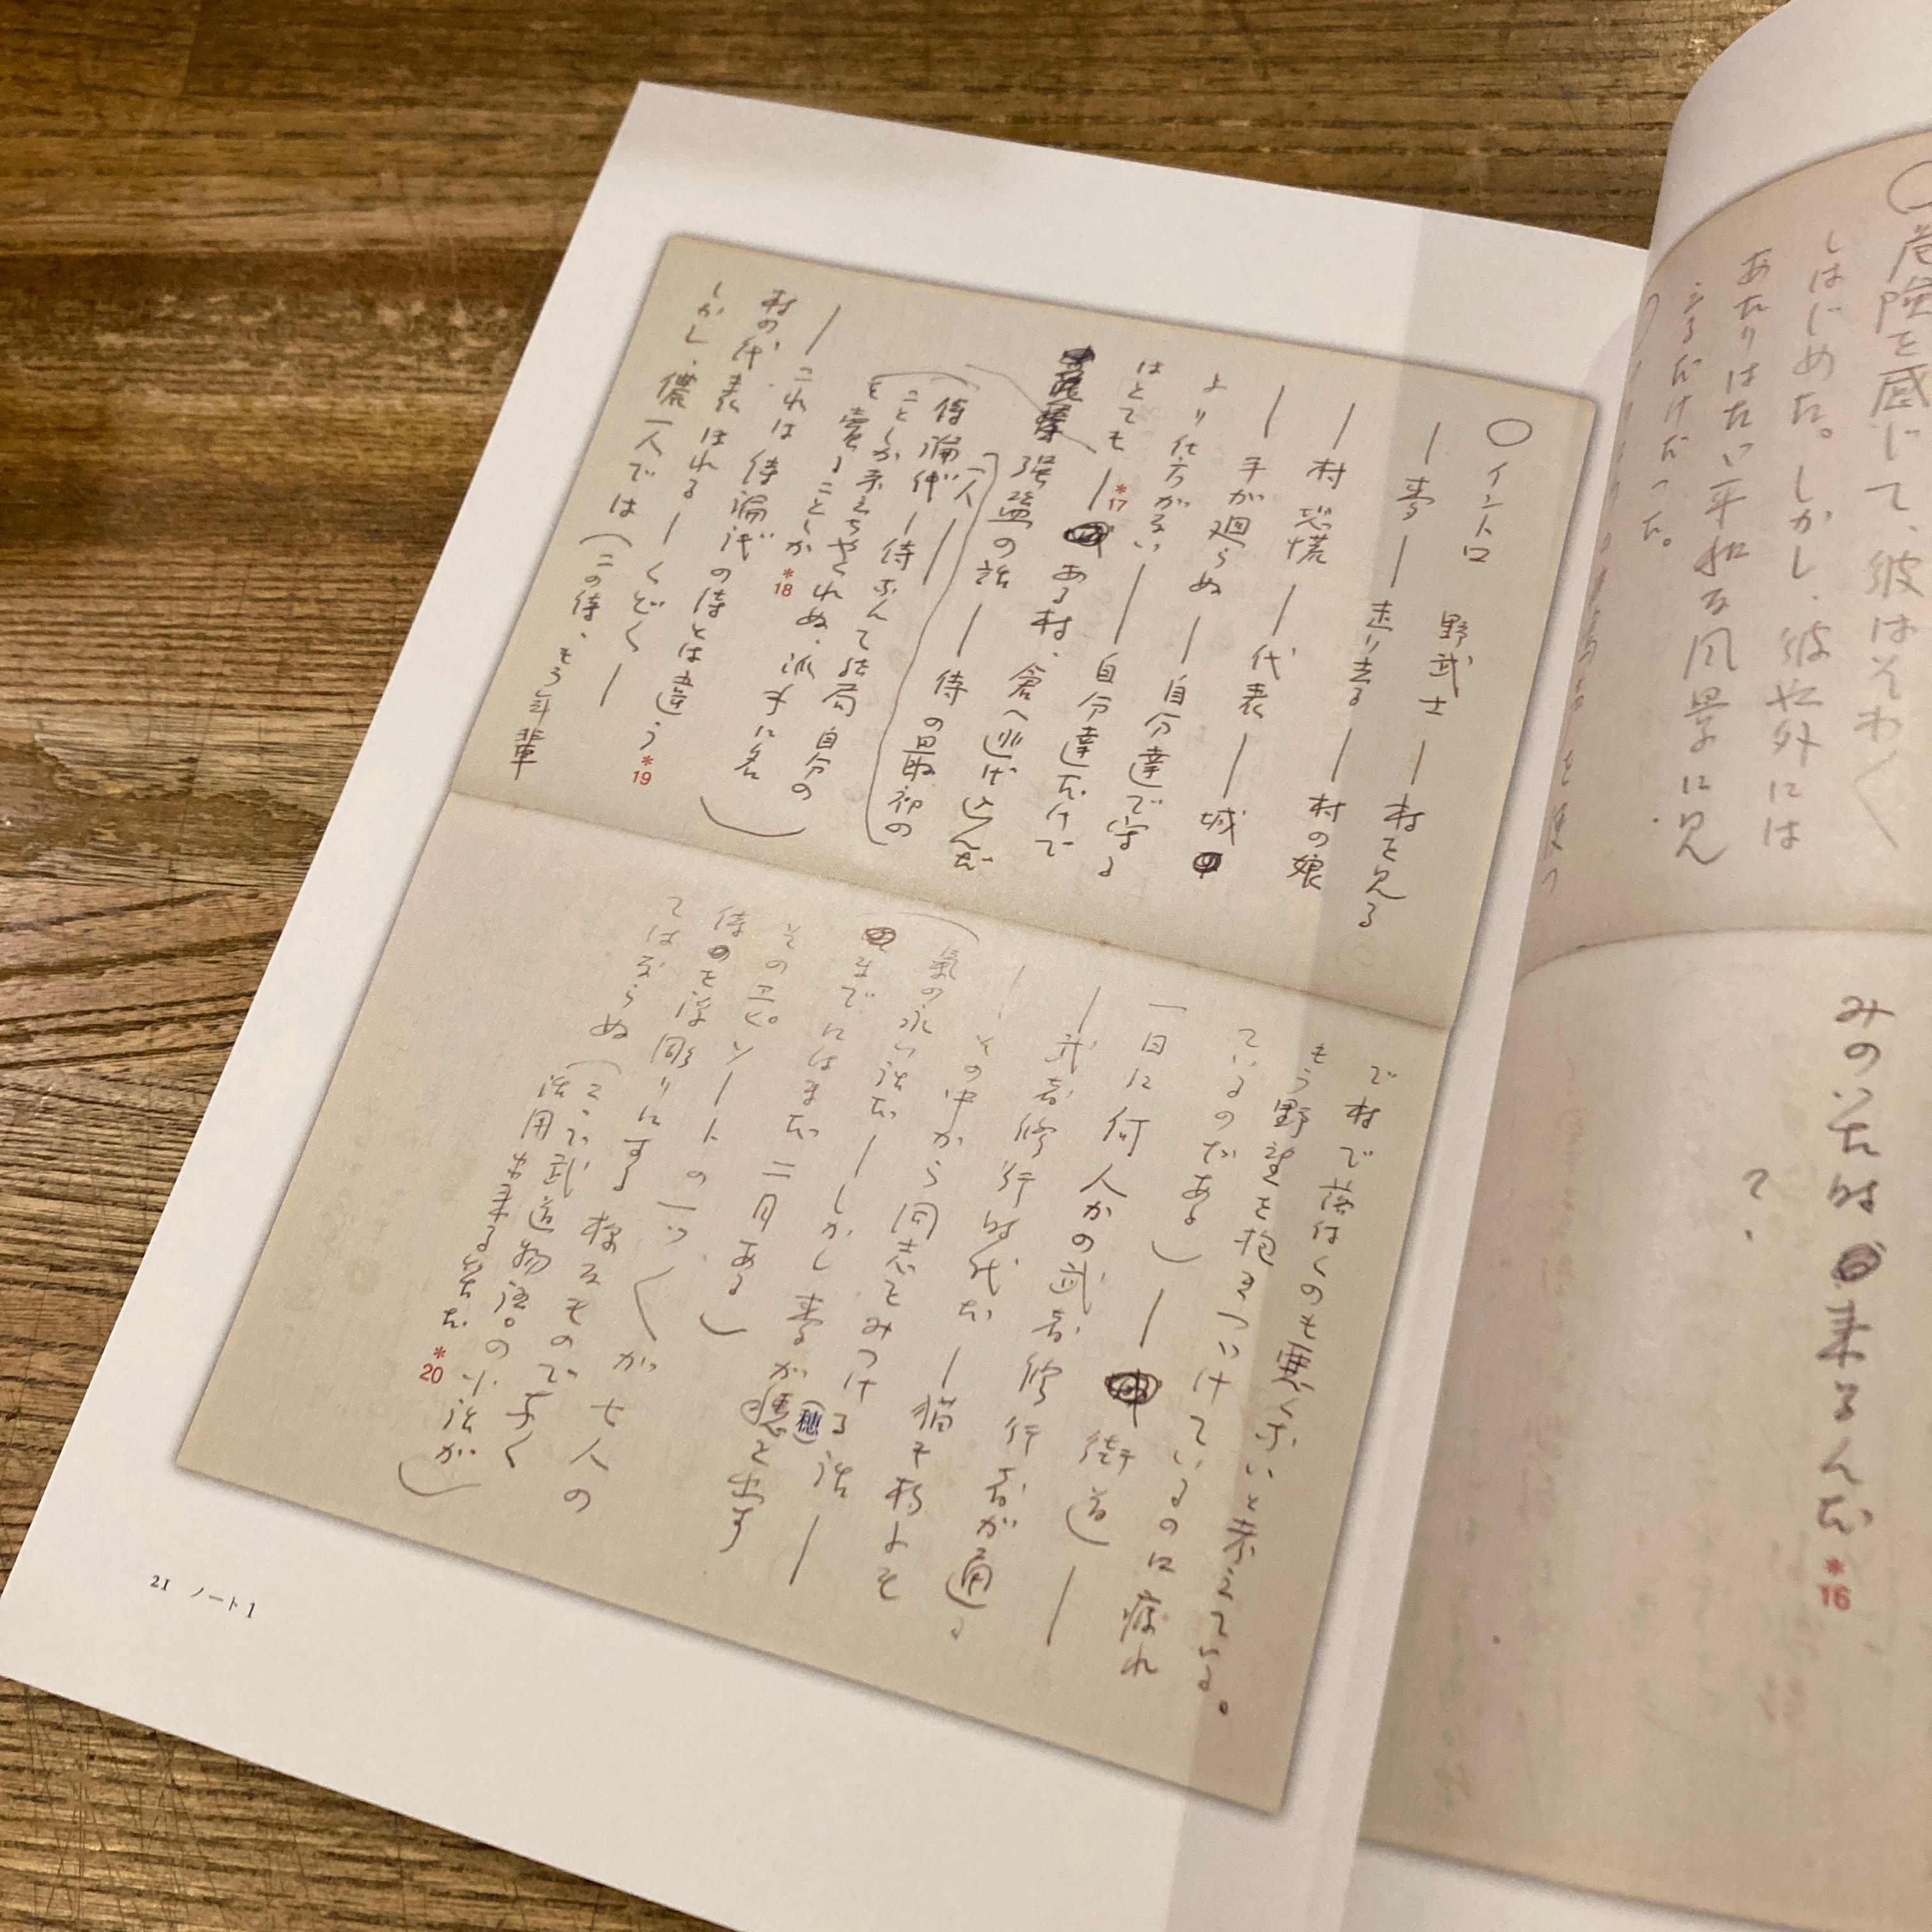 ○危険を感じて、彼はそわ〱
しはじめた。しかし、彼や外には
あたりはたゞ平和な風景に見
えるだけだった。
みのいた時来るんだ *16
?
○イントロ 野武士―村を見る
―麥―走り去る―村の娘
―村 恐慌―代表―城
―手が廻らぬ―自分達で守る
より仕方がない―自分達だけで
はとても―*17 ある村、倉へ逃げ込んだ
強盗の話―侍の最初の
一人―
(侍論議―侍なんて結局自分の
ことしか考えちやくれぬ、派手に名
を賣ることしか *18 )
―これは侍論議の侍とは違う *19
村の代表 ほれる―くどく―
しかし、儂一人では(この侍、もう年輩
で村で落付くのも悪くないと考えてゐる。
もう野望を抱きつゞけているのに疲れ
ているのである)―街道―
一日に何人かの武者修行者が通る
―武者修行時代だ―猫も杓子も
―その中から同志をみつける話―
(氣の永い話だ―しかし麥が穂を出す
(穂)
までにはまだ二月ある)
そのエピソードの一つ〱が七人の
侍を浮彫りにする様なものでなく
てはならぬ(こゝで武道物語の小話が
活用出来る筈だ *20 )
21 ノート1